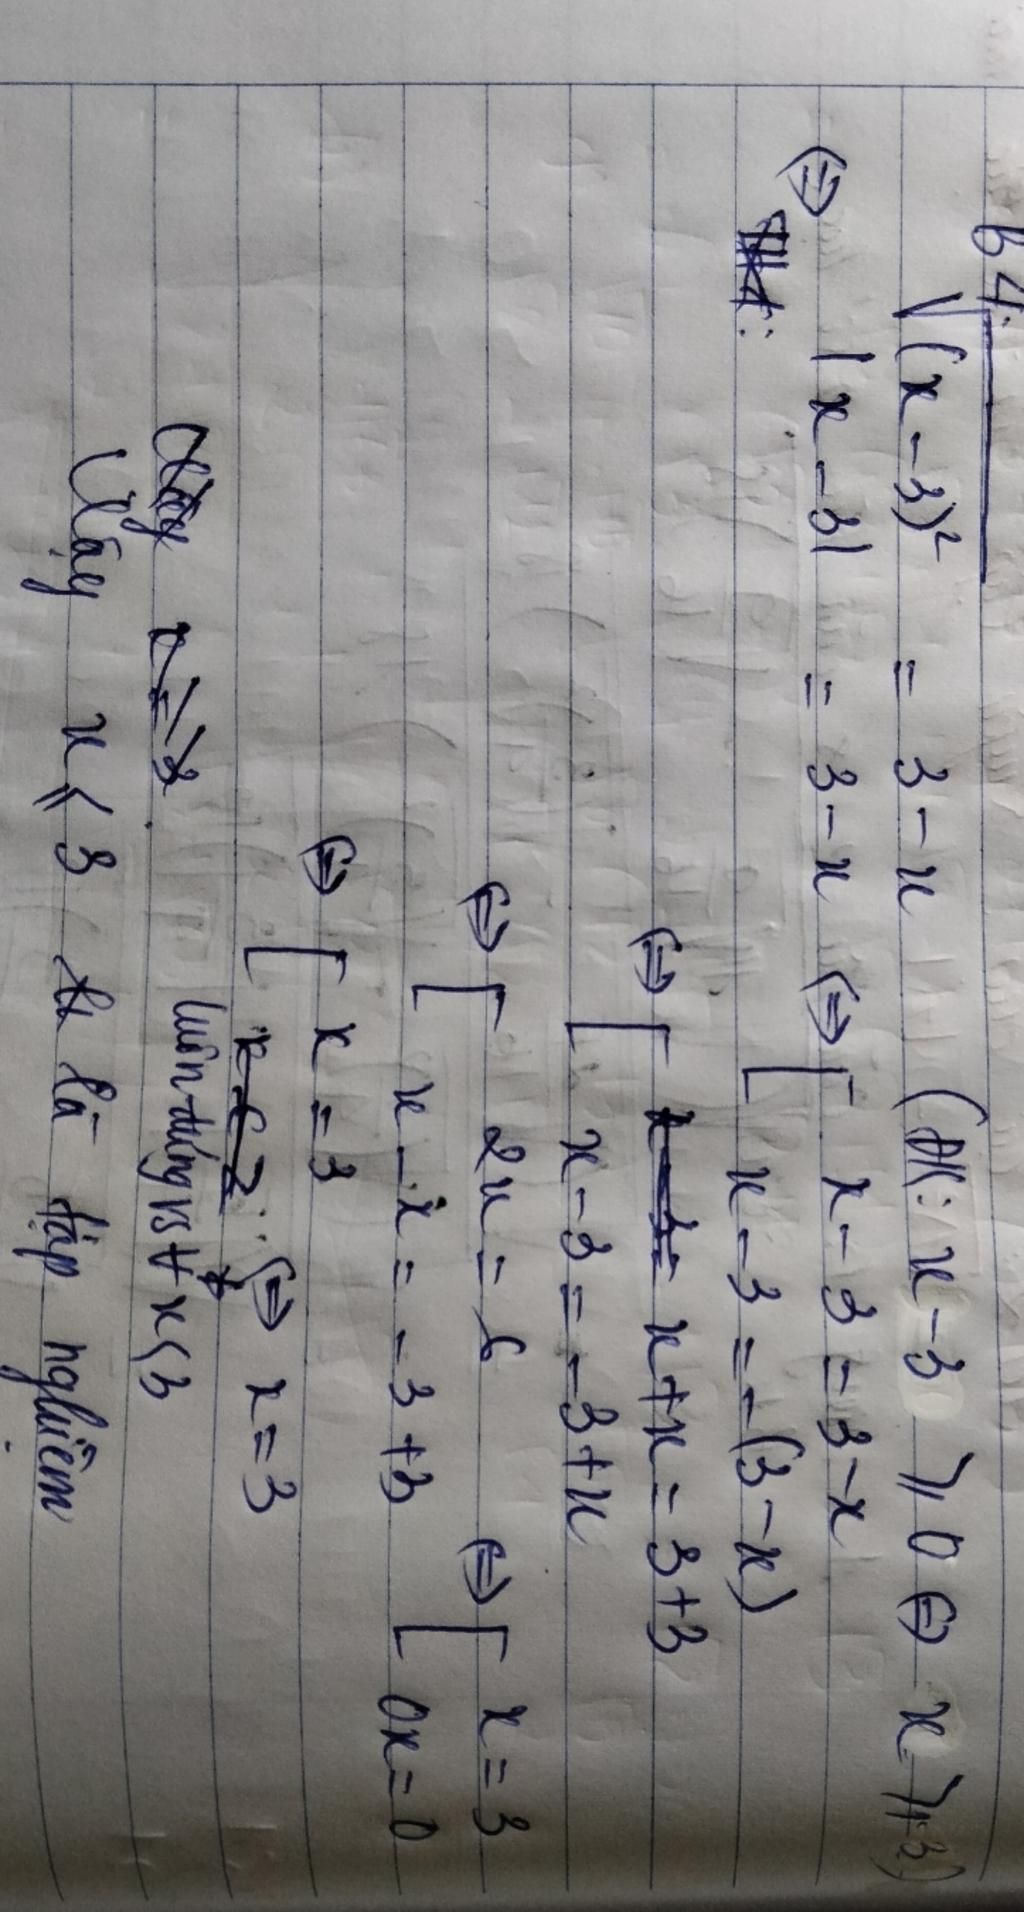 b4.
√(x-3)² = 3-x (ĐK: x-3 ⩾ 0 ⇔ x ⩾ 3)
⇔ |x-3| = 3-x ⇔ [ x-3 = 3-x
x-3 = -(3-x)
⇔ [ x+x = 3+3
x-3 = -3+x
⇔ [ 2x = 6 ⇔ [ x = 3
x-x = -3+3 0x = 0
⇔ [ x = 3
⇔ x = 3
luôn đúng vs ∀ x ⩽ 3
Vậy x ⩽ 3 là tập nghiệm